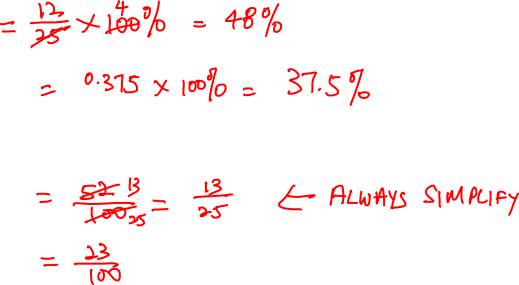 = 12/25 × 100% 4 = 48%
= 0.375 × 100% = 37.5%
= 52/100 13/25 = 13/25 ← ALWAYS SIMPLIFY
= 23/100